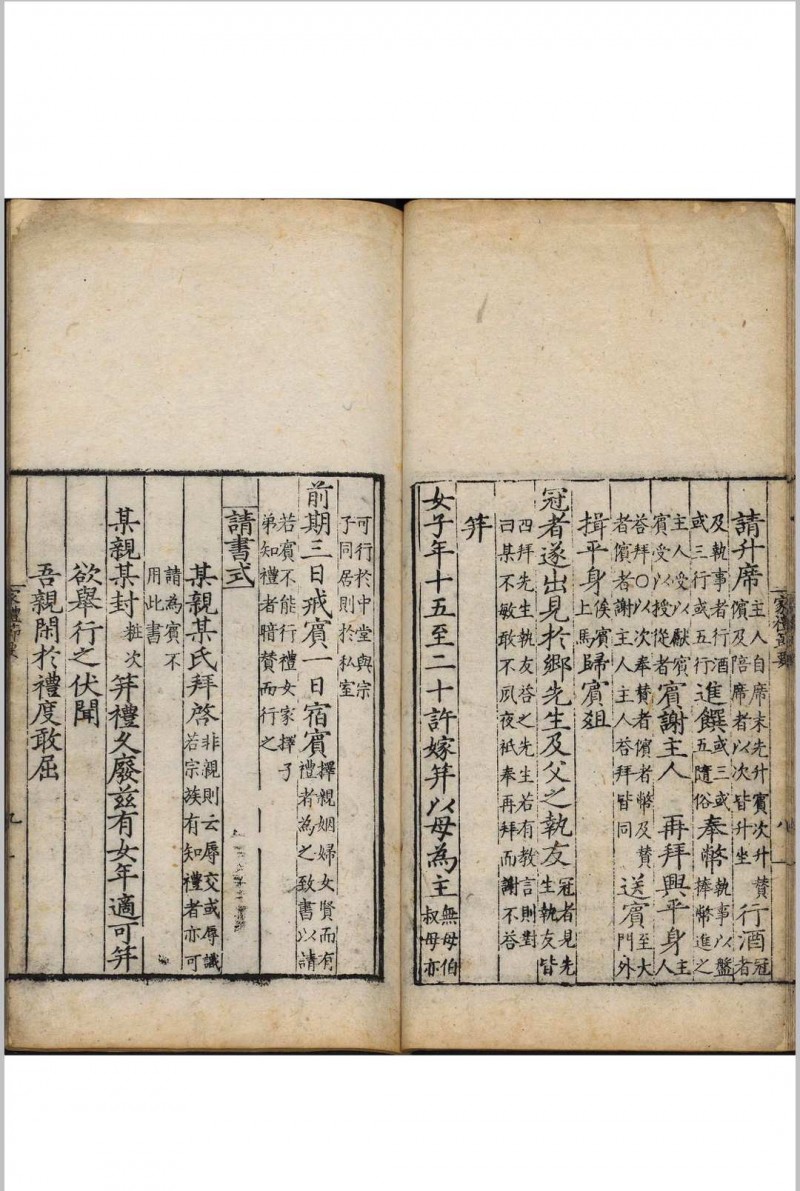 請升席主人自席末先升賓次升贊儐及陪席者以次皆升坐行酒冠者
及執事者行酒或三行或五行進饌或三或五隨俗奉幣執事以盤捧幣進之
主人受以獻賓賓受以授從者賓謝主人 再拜興平身主人
答拜○以次奉贊者儐者幣及贊者儐者謝主人主人答拜皆同送賓至大門外
揖平身俟賓上馬歸賓俎
冠者遂出見於鄉先生及父之執友冠者見先生執友皆
四拜先生執友答之先生若有教言則對曰某不敏敢不夙夜祗奉再拜而謝不答
笄
女子年十五至二十許嫁笄以母為主無母伯叔母亦
可行於中堂與宗子同居則於私室
前期三日戒賓一日宿賓擇親姻婦女賢而有禮者為之致書以請
若賓不能行禮女家擇子弟知禮者暗贊而行之
請書式
某親某氏拜啓非親則云辱交或辱識若宗族有知禮者亦可
請為賓不用此書
某親某封粧次 笄禮久廢茲有女年適可笄
欲舉行之伏聞
吾親閑於禮度敢屈